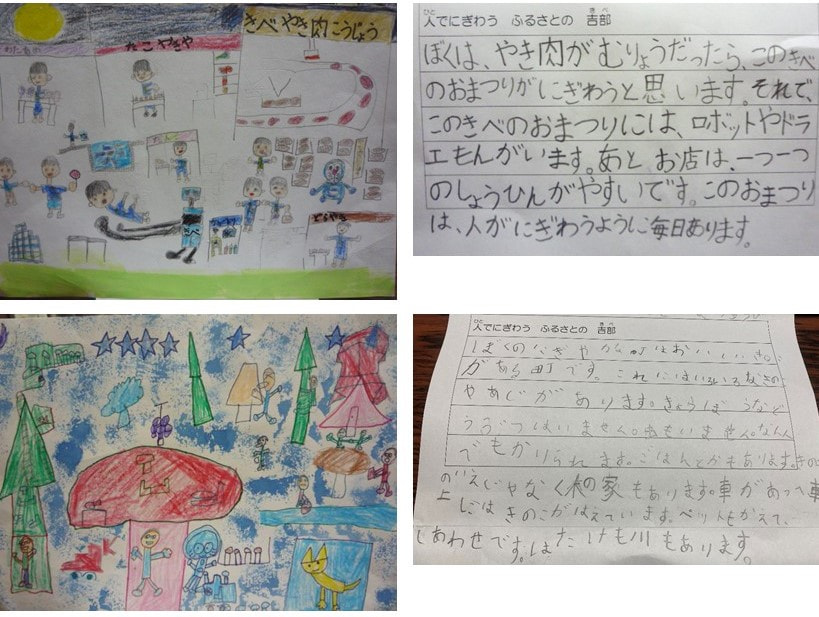 きべ やき肉こうじょう
たこやきや
どらやき
人でにぎわう ふるさとの 吉部
ぼくは、やき肉がむりょうだったら、このきべ
のおまつりがにぎわうと思います。それで、
このきべのおまつりには、ロボットやドラ
エもんがいます。あと お店は、一つ一つ
のしょうひんがやすいです。このおまつり
は、人がにぎわうように毎日あります。
人でにぎわう ふるさとの 吉部
ぼくの 町はおいしい
がある町です。これにはいろいろな
やあじがあります。
うぶつはいません。 いません。なん
でもかりられます。ごはんとかもあります。
のいえじゃなく木の家もあります。車があって車
上にはきのこがはえています。ペットもかえて、
しあわせです。はたけも川もあります。